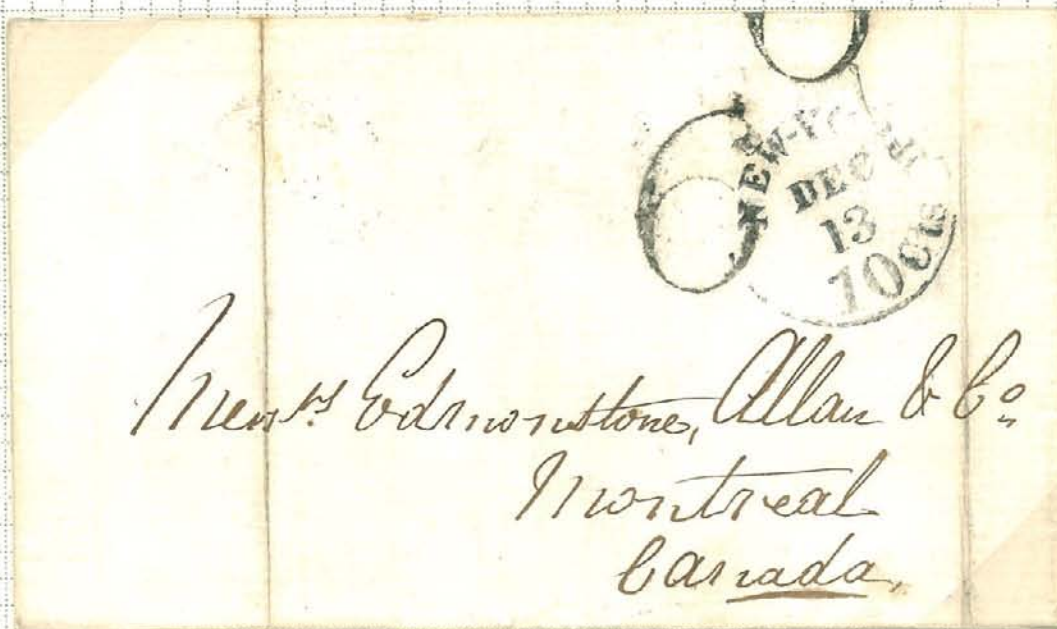 6
NEW-YORK
DEC
13
10 Cts
Messrs Edmonstone, Allan & Co
Montreal
Canada,